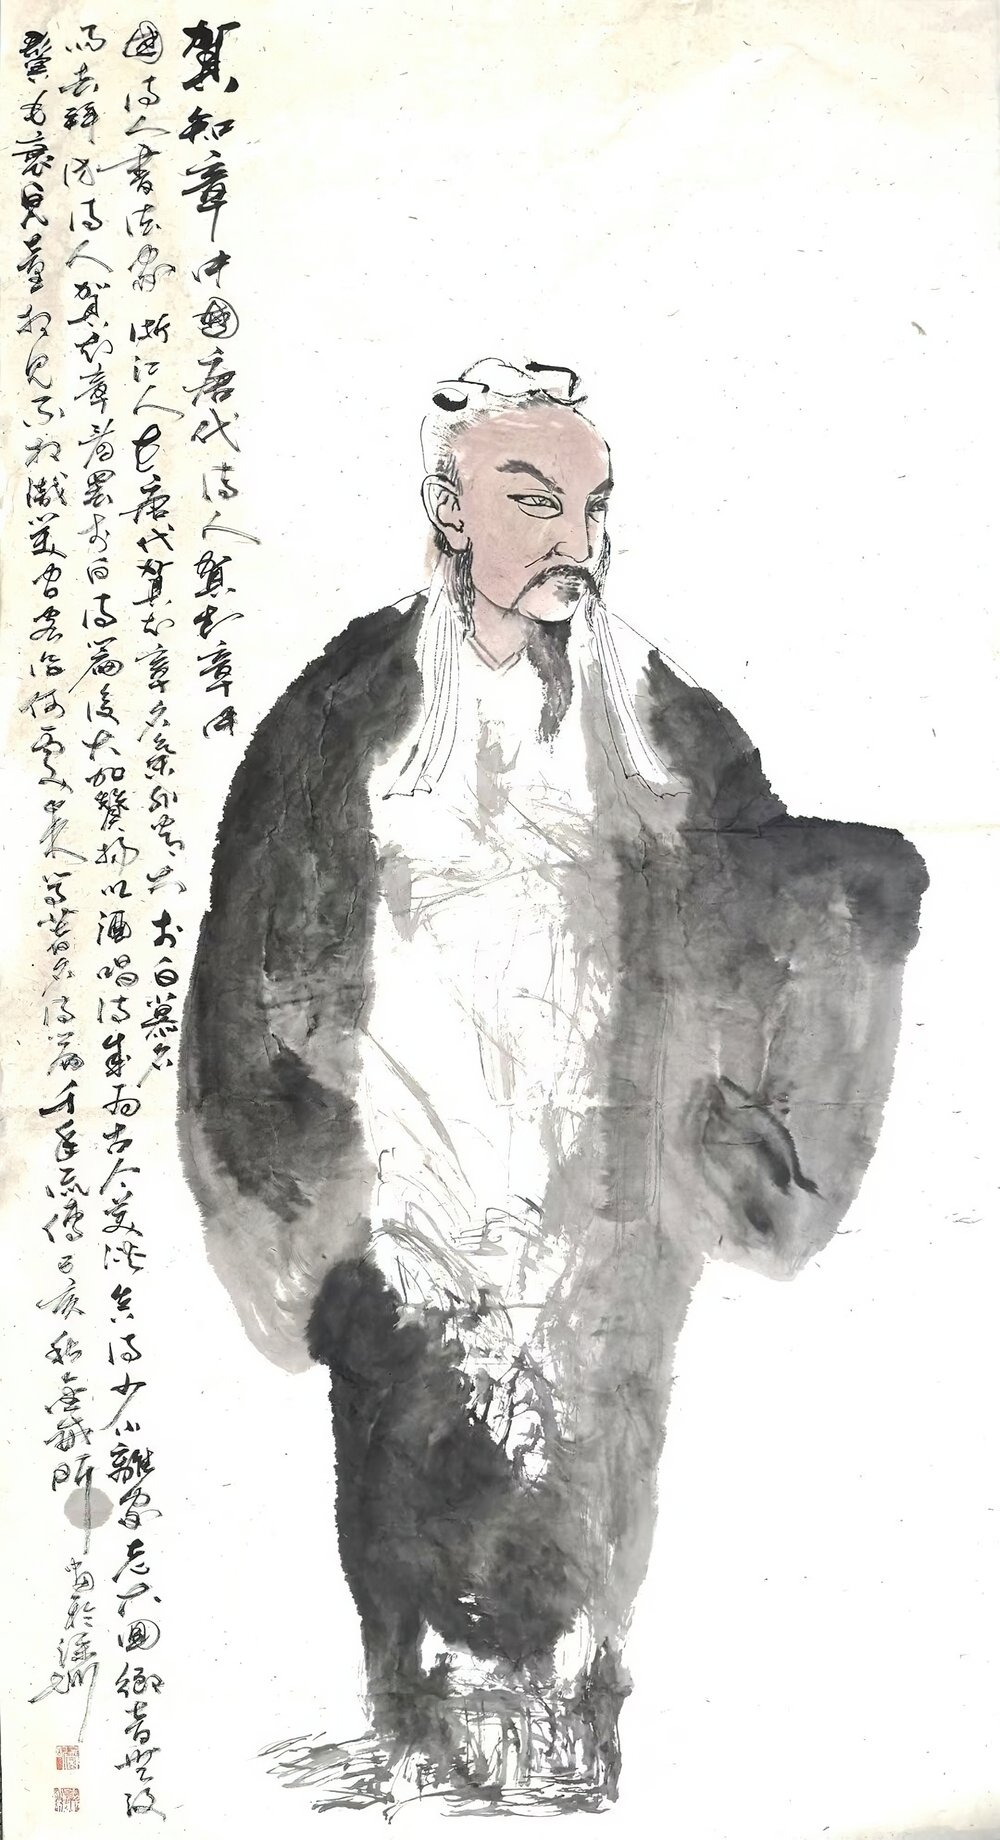 賀知章中國唐代詩人賀知章中
國詩人書法家浙江人在唐代賀知章名氣非常大李白慕名
而去拜訪詩人賀知章看罷李白詩篇後大加贊揚以酒唱詩成為古今美談其詩少小離家老大回鄉音無改
鬢毛衰兒童相見不相識笑問客從何處來等著名詩篇千年流傳己亥秋
畫於深圳